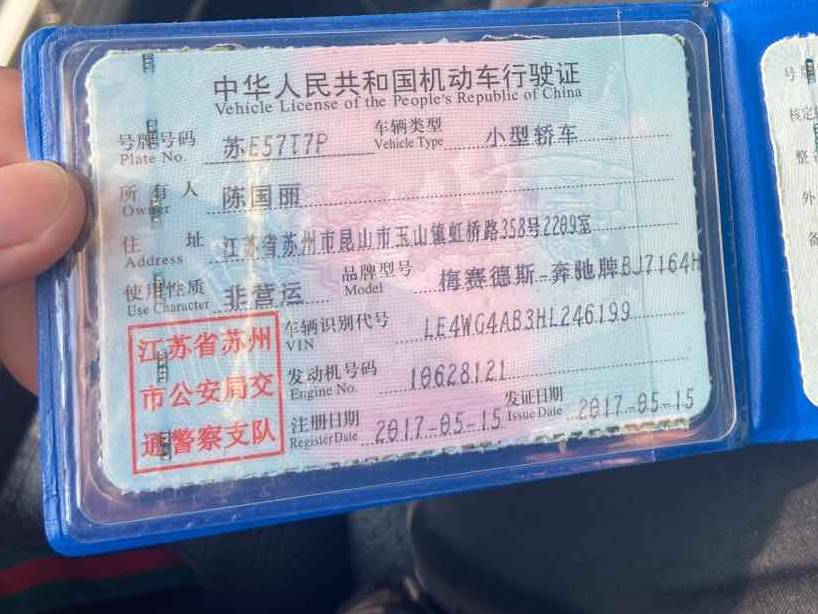 中华人民共和国机动车行驶证
Vehicle License of the People's Republic of China
号牌号码 苏E57T7P 车辆类型 小型轿车
Plate No. Vehicle Type
所有人 陈国丽
Owner
住址 江苏省苏州市昆山市玉山镇虹桥路358号2209室
Address
使用性质 非营运 品牌型号 梅赛德斯-奔驰牌BJ7164H
Use Character Model
江苏省苏州
市公安局交
通警察支队
车辆识别代号 LE4WG4AB3HL246199
VIN
发动机号码 10628121
Engine No.
注册日期 2017-05-15 发证日期 2017-05-15
Register Date Issue Date
号牌
核定
整
外